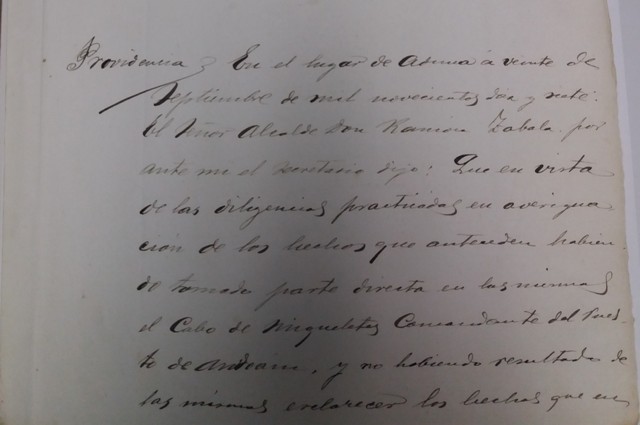 Providencia En el lugar de Asmua a veinte de
Septiembre de mil novecientos diez y siete:
El Señor Alcalde Don Ramon Zabala por
ante mi el secretario dijo: Que en vista
de las diligencias practicadas en averigua
cion de los hechos que anteceden habien
do tomado parte directa en las mismas
el Cabo de Migueletes Comandante del Pues-
to de Andoain, y no habiendo resultado de
las mismas esclarecer los hechos que en